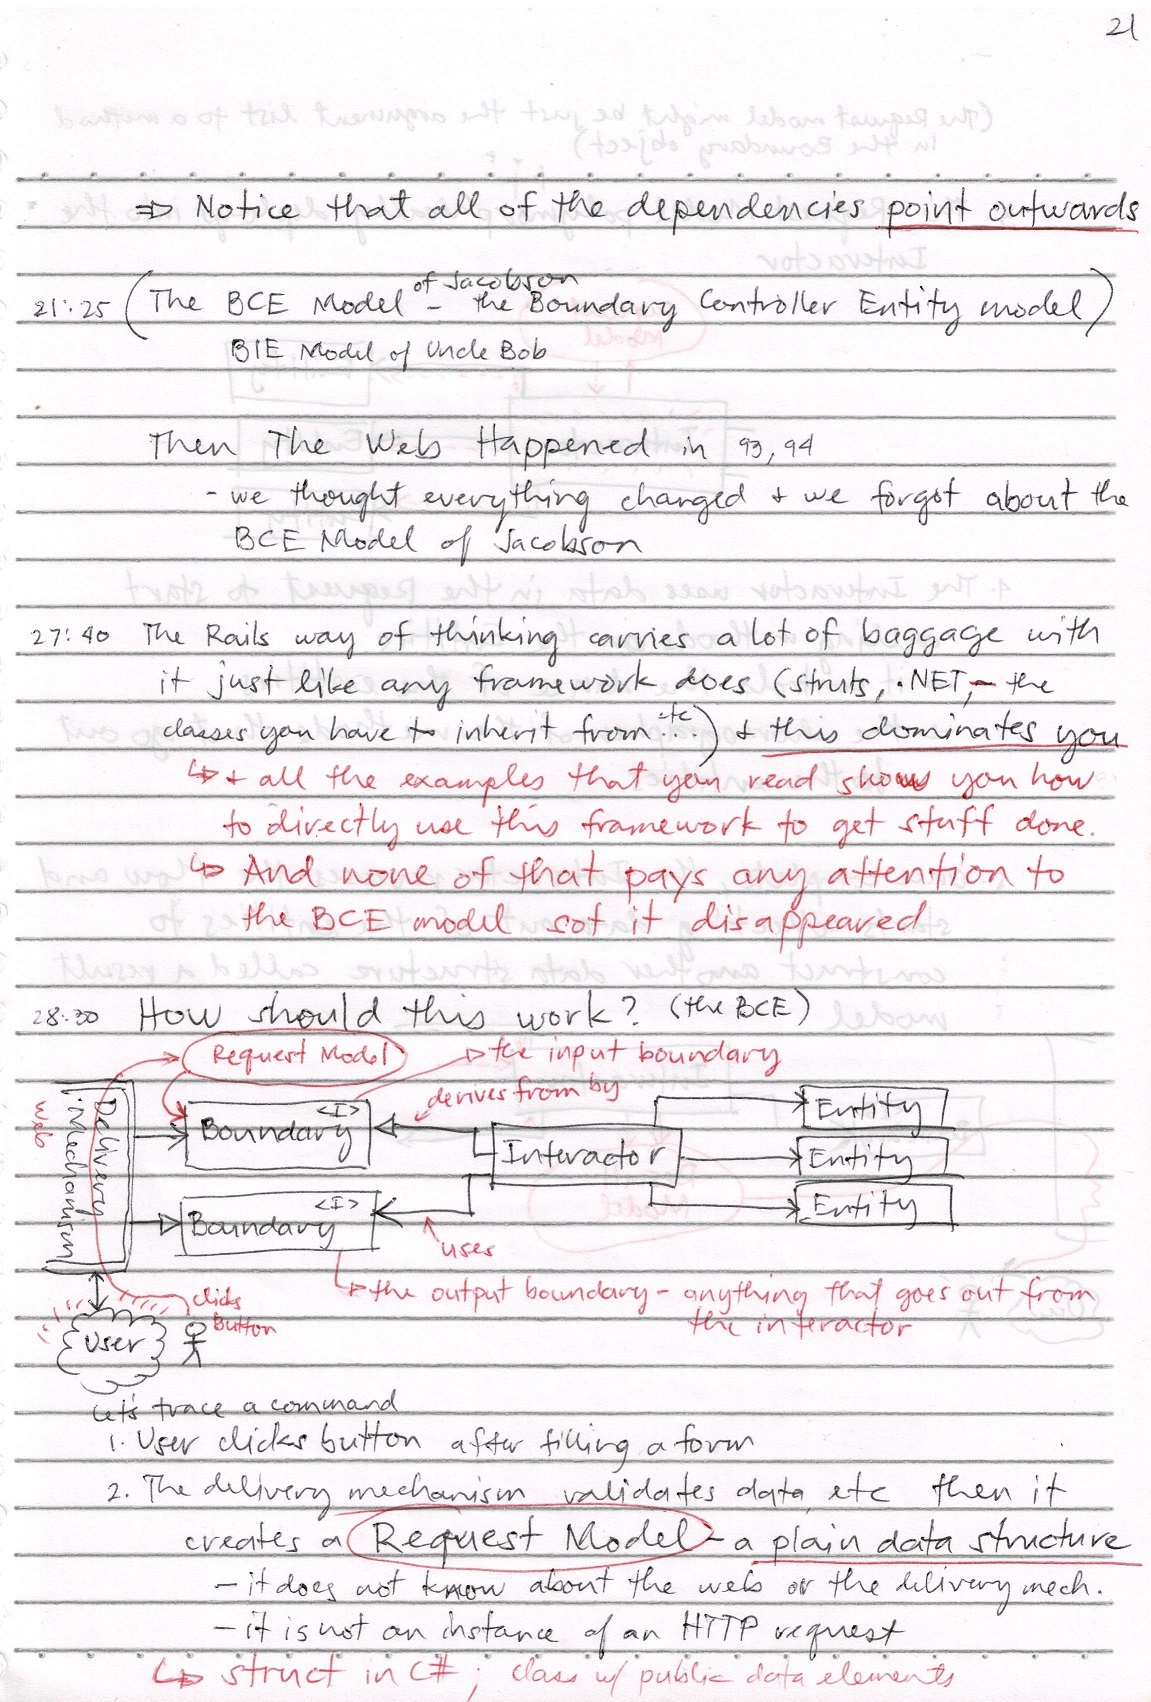 21
⇒ Notice that all of the dependencies point outwards
21:25 (The BCE Model of Jacobson - the Boundary Controller Entity model)
BIE Model of Uncle Bob
Then The Web Happened in 93, 94
- we thought everything changed & we forgot about the
BCE Model of Jacobson
27:40 The Rails way of thinking carries a lot of baggage with
it just like any framework does (struts, .NET, - the
classes you have to inherit from ... etc) & this dominates you
↳ & all the examples that you read shows you how
to directly use this framework to get stuff done.
↳ And none of that pays any attention to
the BCE model sot it disappeared
28:30 How should this work? (the BCE)
Request Model
the input boundary
derives from by
Web
Delivery
Mechanism
<I>
Boundary
Interactor
Entity
Entity
Entity
<I>
Boundary
uses
the output boundary - anything that goes out from
the interactor
clicks
button
User
Let's trace a command
1. User clicks button after filling a form
2. The delivery mechanism validates data, etc then it
creates a Request Model - a plain data structure
- it does not know about the web or the delivery mech.
- it is not an instance of an HTTP request
↳ struct in C# ; class w/ public data elements